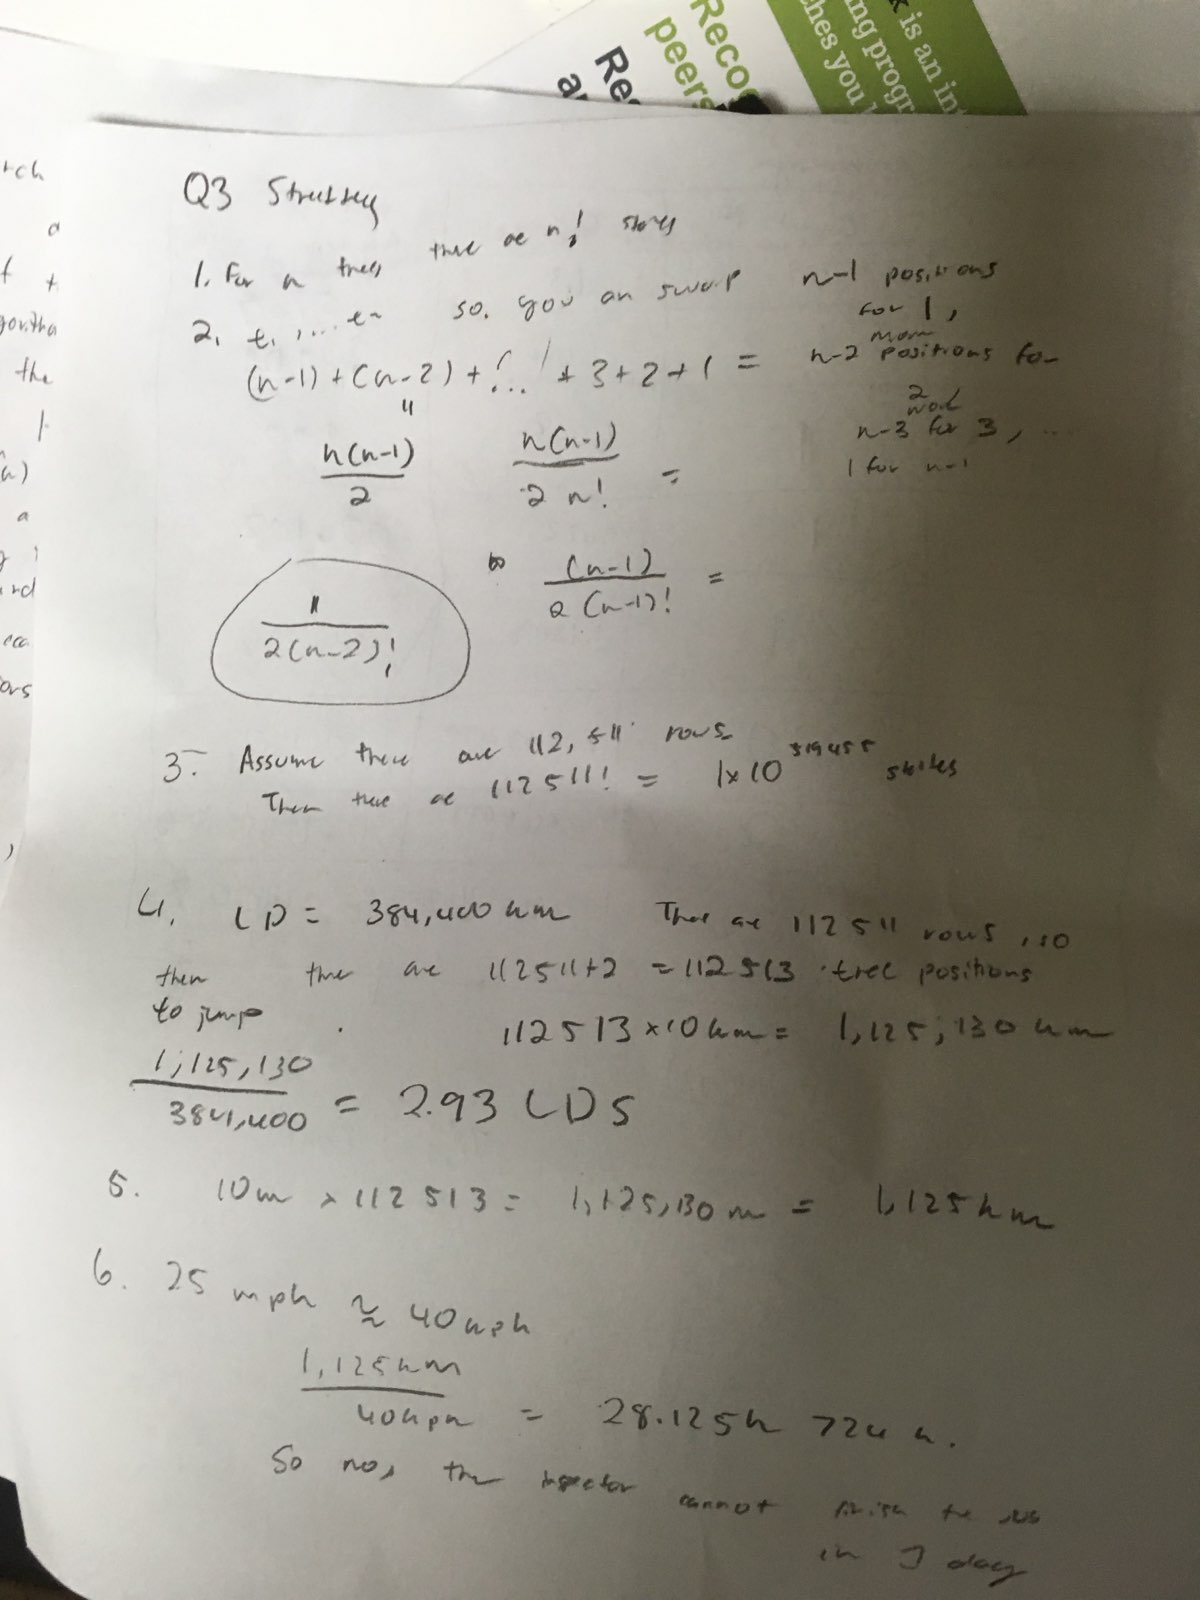 Recog
peers
Re
a
k is an in
ing progr
ches you
rch
a
f
t
the
a
ors
Q3 Strategy
1. For n trees there are n! states
2. t, .... tn so, you can swap n-1 positions
for 1,
n-2 positions for
2 and
n-3 for 3, ...
1 for n-1
(n-1) + (n-2) + (... + 3+2+1 =
"
n(n-1)/2 n(n-1)/2 n! =
(n-1)/2(n-1)! =
1/2(n-2)!
3. Assume there are 112,511 rows
Then there are 112511! = 1x10^519455 states
4. LD = 384,400 km There are 112511 rows, so
then there are 112511+2 = 112513 tree positions
to jump. 112513 x 10 km = 1,125,130 km
1,125,130/384,400 = 2.93 LDs
5. 10m x 112513 = 1,125,130 m = 1,125 km
6. 25 mph ≈ 40 kph
1,125 km/40 kph = 28.125h > 24 h.
So no, the inspector cannot finish the job
in 1 day